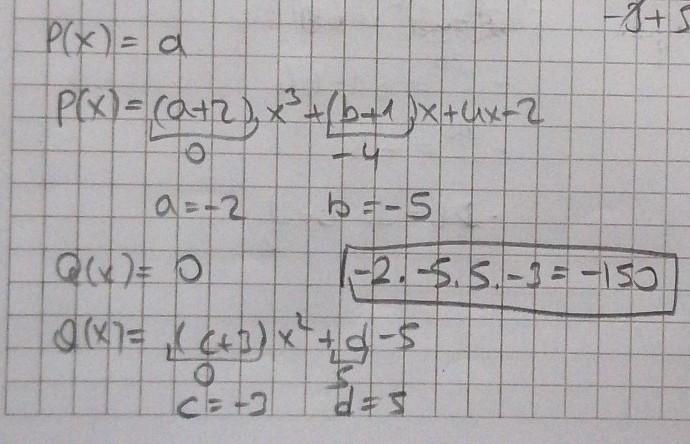 -8+5
P(x) = a
P(x) = (a+2).x³ + (b+1)x + 4x - 2
0 -4
a = -2 b = -5
Q(x) = 0 -2. -5. 5. -3 = -150
Q(x) = (c+3)x² + d - 5
0 5
c = -3 d = 5